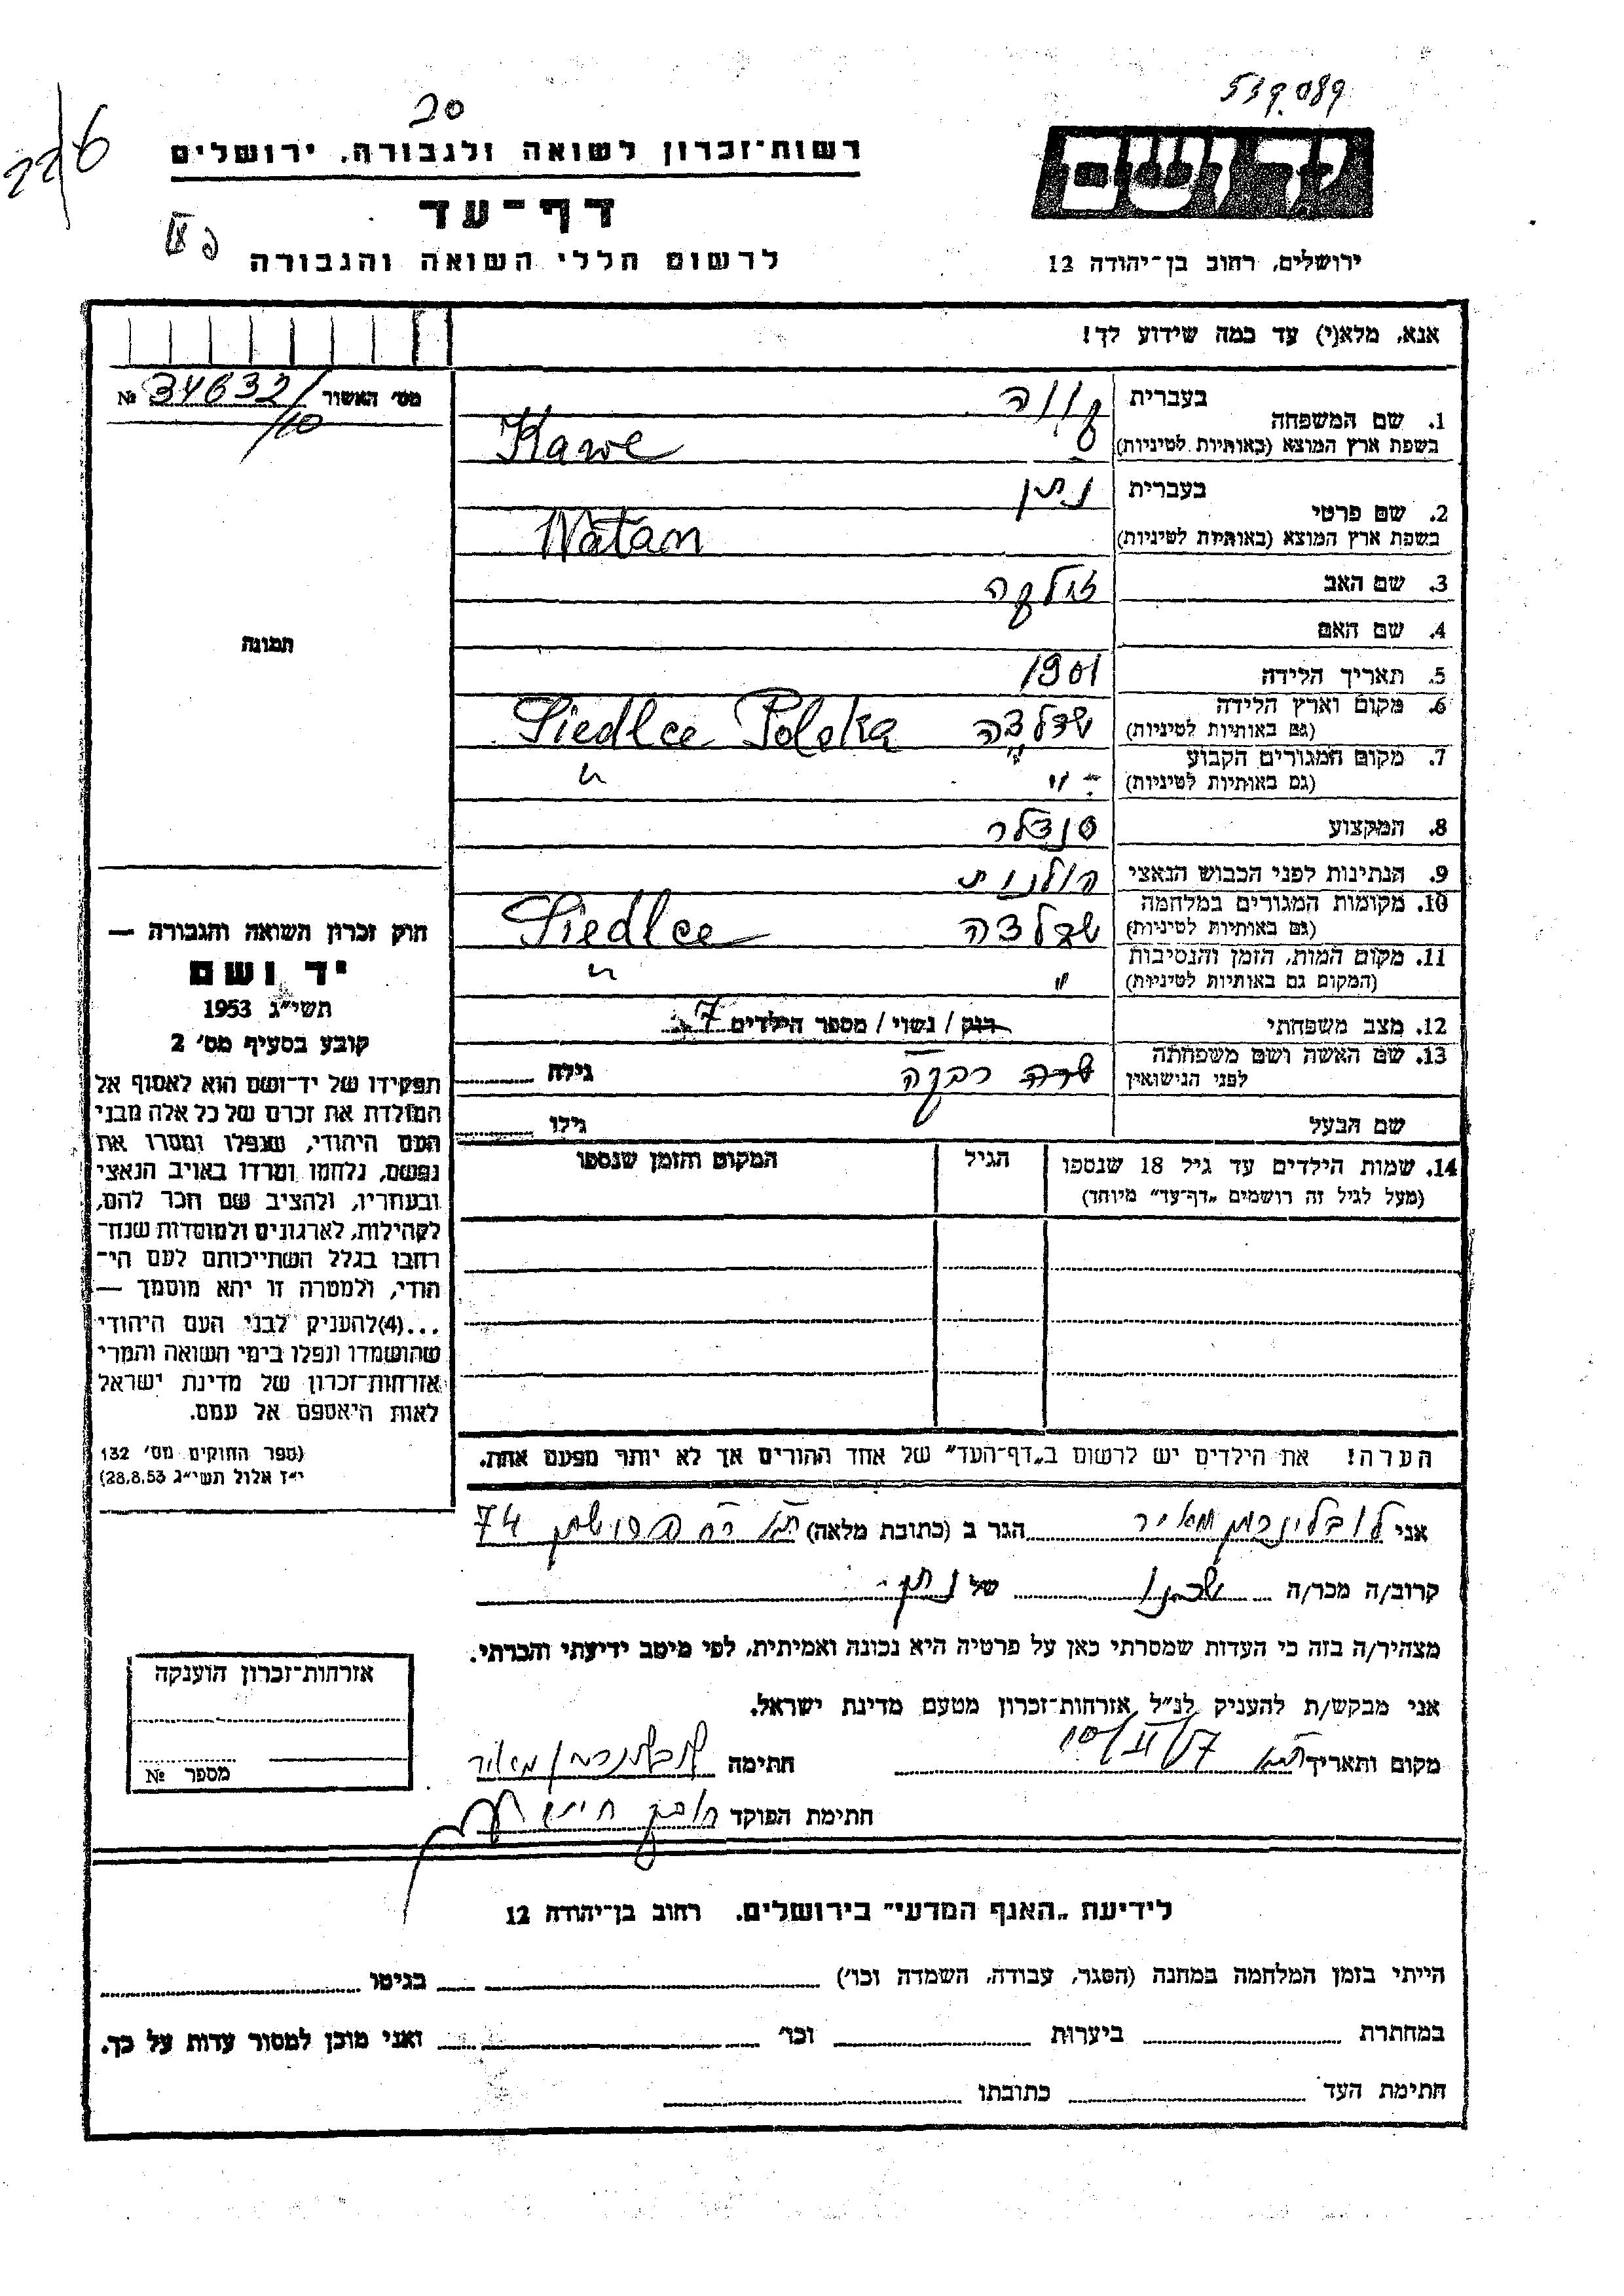 539089
20
226
רשות־זכרון לשואה ולגבורה, ירושלים
דף־עד
לרשום חללי השואה והגבורה
יד ושם
ירושלים, רחוב בן־יהודה 12
אנא, מלא(י) עד כמה שידוע לך!
מס׳ האשור 34632/10 №
1. שם המשפחה בעברית קווה
בשפת ארץ המוצא (באותיות לטיניות) Kawe
2. שם פרטי בעברית נתן
בשפת ארץ המוצא (באותיות לטיניות) Natan
3. שם האב זולקה
4. שם האם
5. תאריך הלידה 1901
6. מקום וארץ הלידה (גם באותיות לטיניות) שדלצה Siedlce Polska
7. מקום המגורים הקבוע (גם באותיות לטיניות) -"- "
8. המקצוע סנדלר
9. הנתינות לפני הכבוש הנאצי פולנית
10. מקומות המגורים במלחמה (גם באותיות לטיניות) שדלצה Siedlce
11. מקום המות, הזמן והנסיבות (המקום גם באותיות לטיניות) " "
12. מצב משפחתי רווק / נשוי / מספר הילדים 7
13. שם האשה ושם משפחתה לפני הנישואין שרה רבקה גילה
שם הבעל גילו
14. שמות הילדים עד גיל 18 שנספו הגיל המקום והזמן שנספו
(מעל לגיל זה רושמים „דף־עד” מיוחד)
הערה! את הילדים יש לרשום ב„דף־העד” של אחד ההורים אך לא יותר מפעם אחת.
תמונה
חוק זכרון השואה והגבורה —
יד ושם
תשי״ג 1953
קובע בסעיף מס׳ 2
תפקידו של יד־ושם הוא לאסוף אל
המולדת את זכרם של כל אלה מבני
העם היהודי, שנפלו ומסרו את
נפשם, נלחמו ומרדו באויב הנאצי
ובעוזריו, ולהציב שם וזכר להם,
לקהילות, לארגונים ולמוסדות שנח־
רבו בגלל השתייכותם לעם הי־
הודי, ולמטרה זו יהא מוסמך —
...(4)להעניק לבני העם היהודי
שהושמדו ונפלו בימי השואה והמרי
אזרחות־זכרון של מדינת ישראל
לאות היאספם אל עמם.
(ספר החוקים מס׳ 132
י״ז אלול תשי״ג 28.8.53)
אני לובלינרמן מאיר הגר ב (כתובת מלאה) ת״א רח 74
קרוב/ה מכר/ה שכנו של נתן
מצהיר/ה בזה כי העדות שמסרתי כאן על פרטיה היא נכונה ואמיתית, לפי מיטב ידיעתי והכרתי.
אני מבקש/ת להעניק לנ״ל אזרחות־זכרון מטעם מדינת ישראל.
מקום ותאריך ת״א חתימה לובלינרמן מאיר
חתימת הפוקד
אזרחות־זכרון הוענקה
מספר №
לידיעת „האגף המדעי” בירושלים. רחוב בן־יהודה 12
הייתי בזמן המלחמה במחנה (הסגר, עבודה, השמדה וכו׳) בגיטו
במחתרת ביערות וכו׳ ואני מוכן למסור עדות על כך.
חתימת העד כתובתו